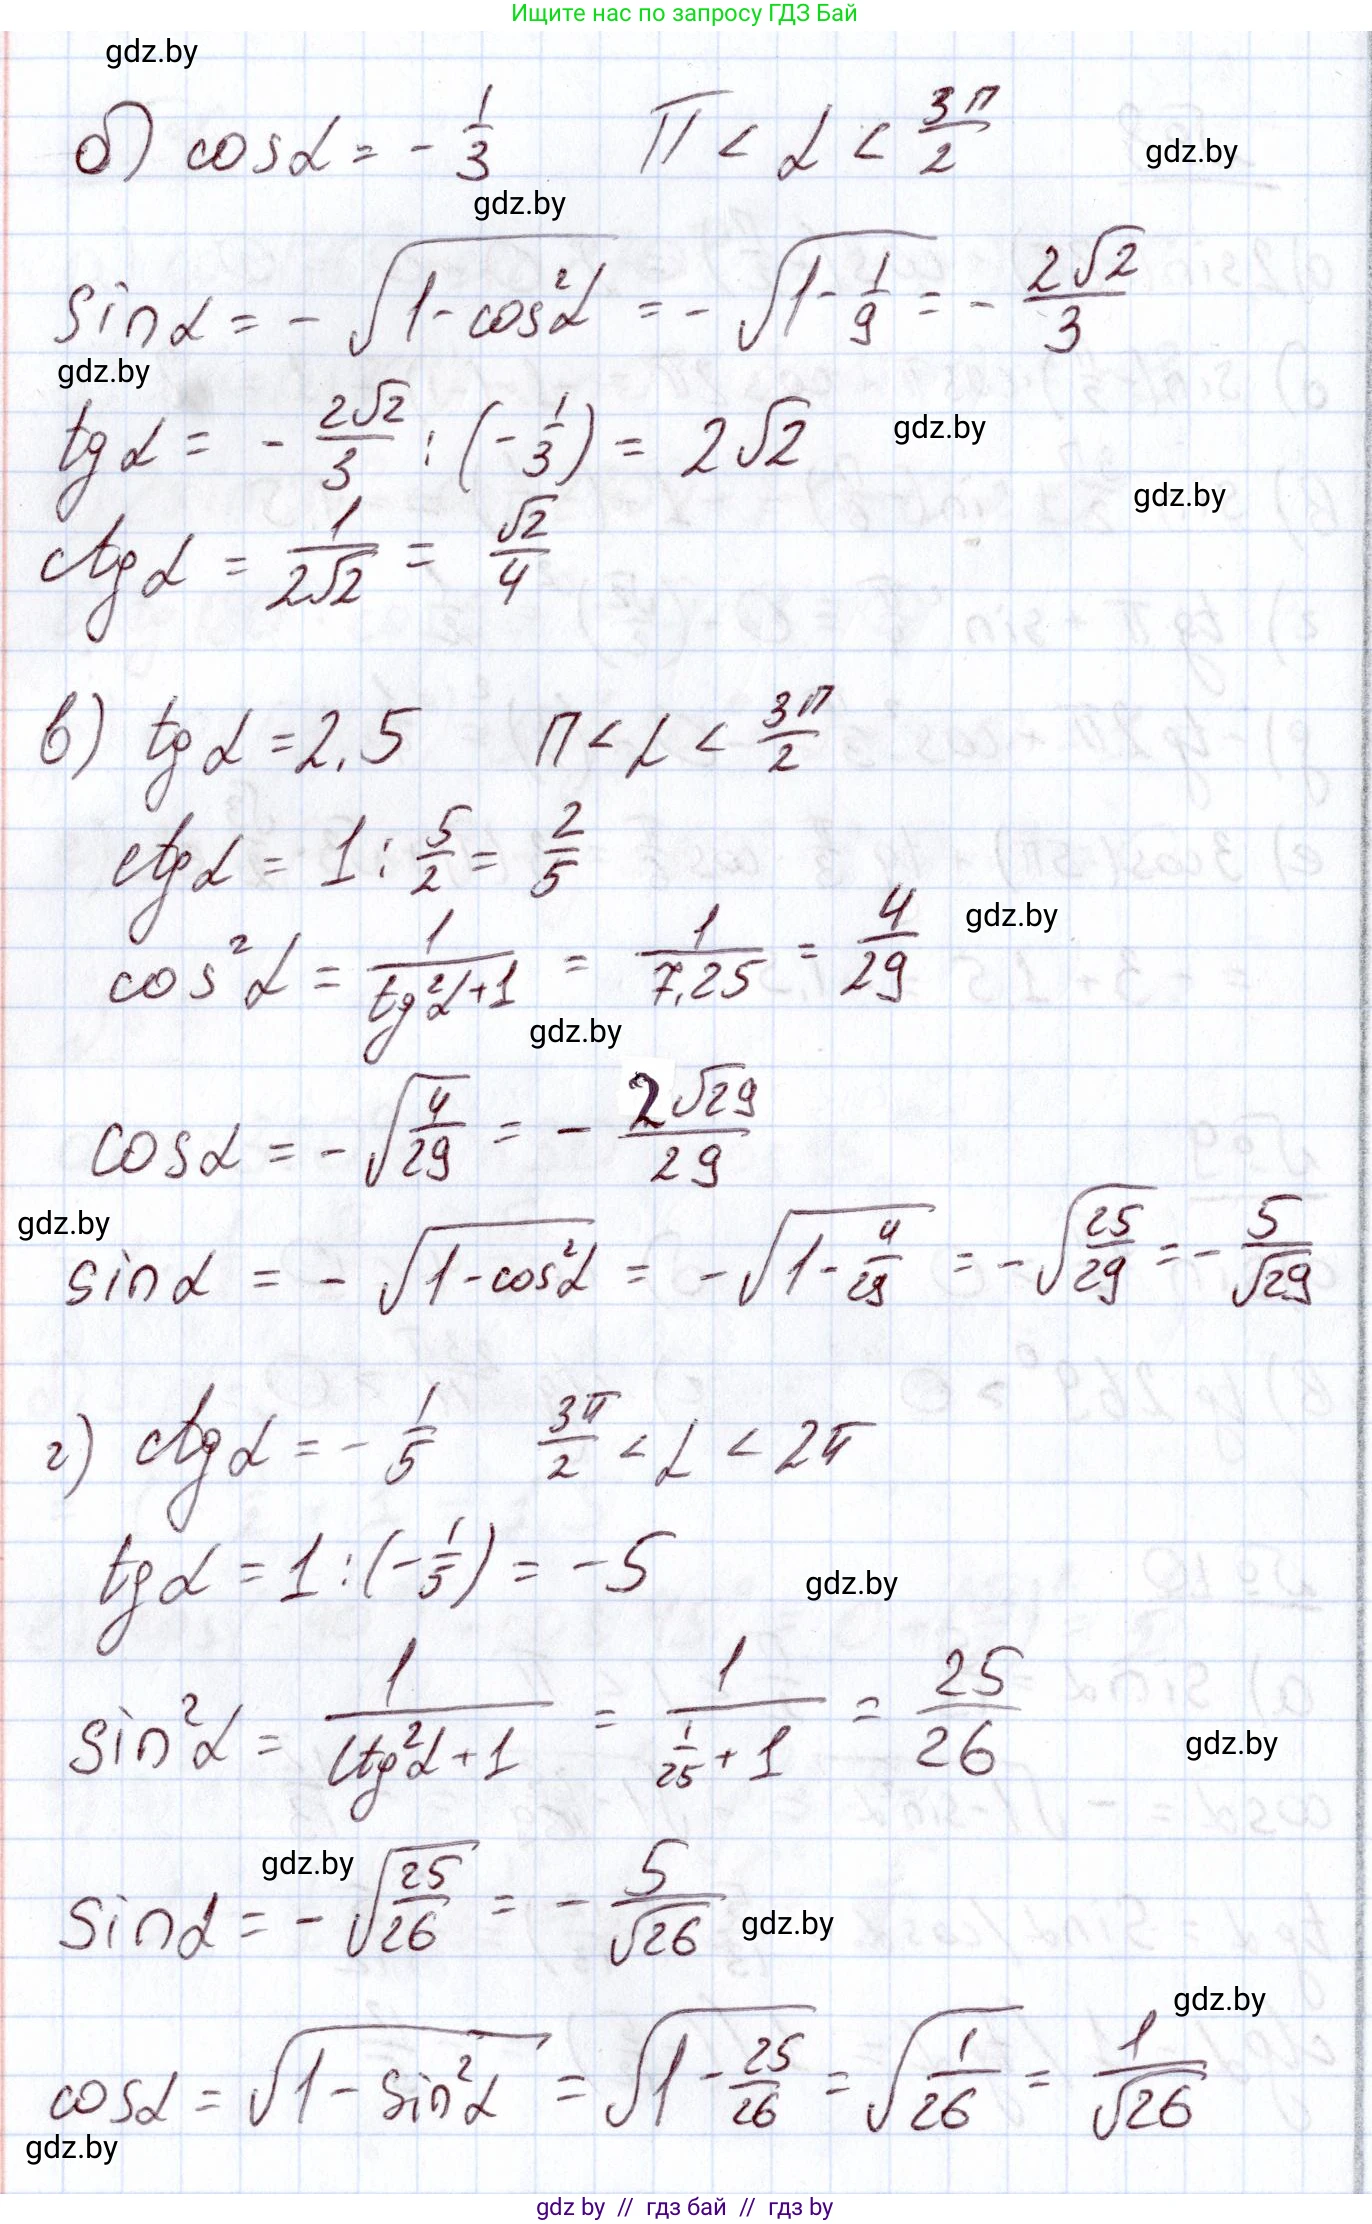 Ищите нас по запросу ГДЗ Бай
gdz.by
б) cosα = - 1/3    π < α < 3π/2
gdz.by
gdz.by
sinα = - √(1 - cos²α) = - √(1 - 1/9) = - 2√2/3
gdz.by
tgα = - 2√2/3 : (- 1/3) = 2√2
gdz.by
gdz.by
ctgα = 1/(2√2) = √2/4
в) tgα = 2,5    π < α < 3π/2
ctgα = 1 : 5/2 = 2/5
gdz.by
cos²α = 1/(tg²α + 1) = 1/7,25 = 4/29
gdz.by
cosα = - √(4/29) = - 2√29/29
gdz.by
sinα = - √(1 - cos²α) = - √(1 - 4/29) = - √(25/29) = - 5/√29
г) ctgα = - 1/5    3π/2 < α < 2π
tgα = 1 : (- 1/5) = -5
gdz.by
sin²α = 1/(ctg²α + 1) = 1/(1/25 + 1) = 25/26
gdz.by
gdz.by
sinα = - √(25/26) = - 5/√26
gdz.by
gdz.by
cosα = √(1 - sin²α) = √(1 - 25/26) = √(1/26) = 1/√26
gdz.by
gdz by // гдз бай // гдз by